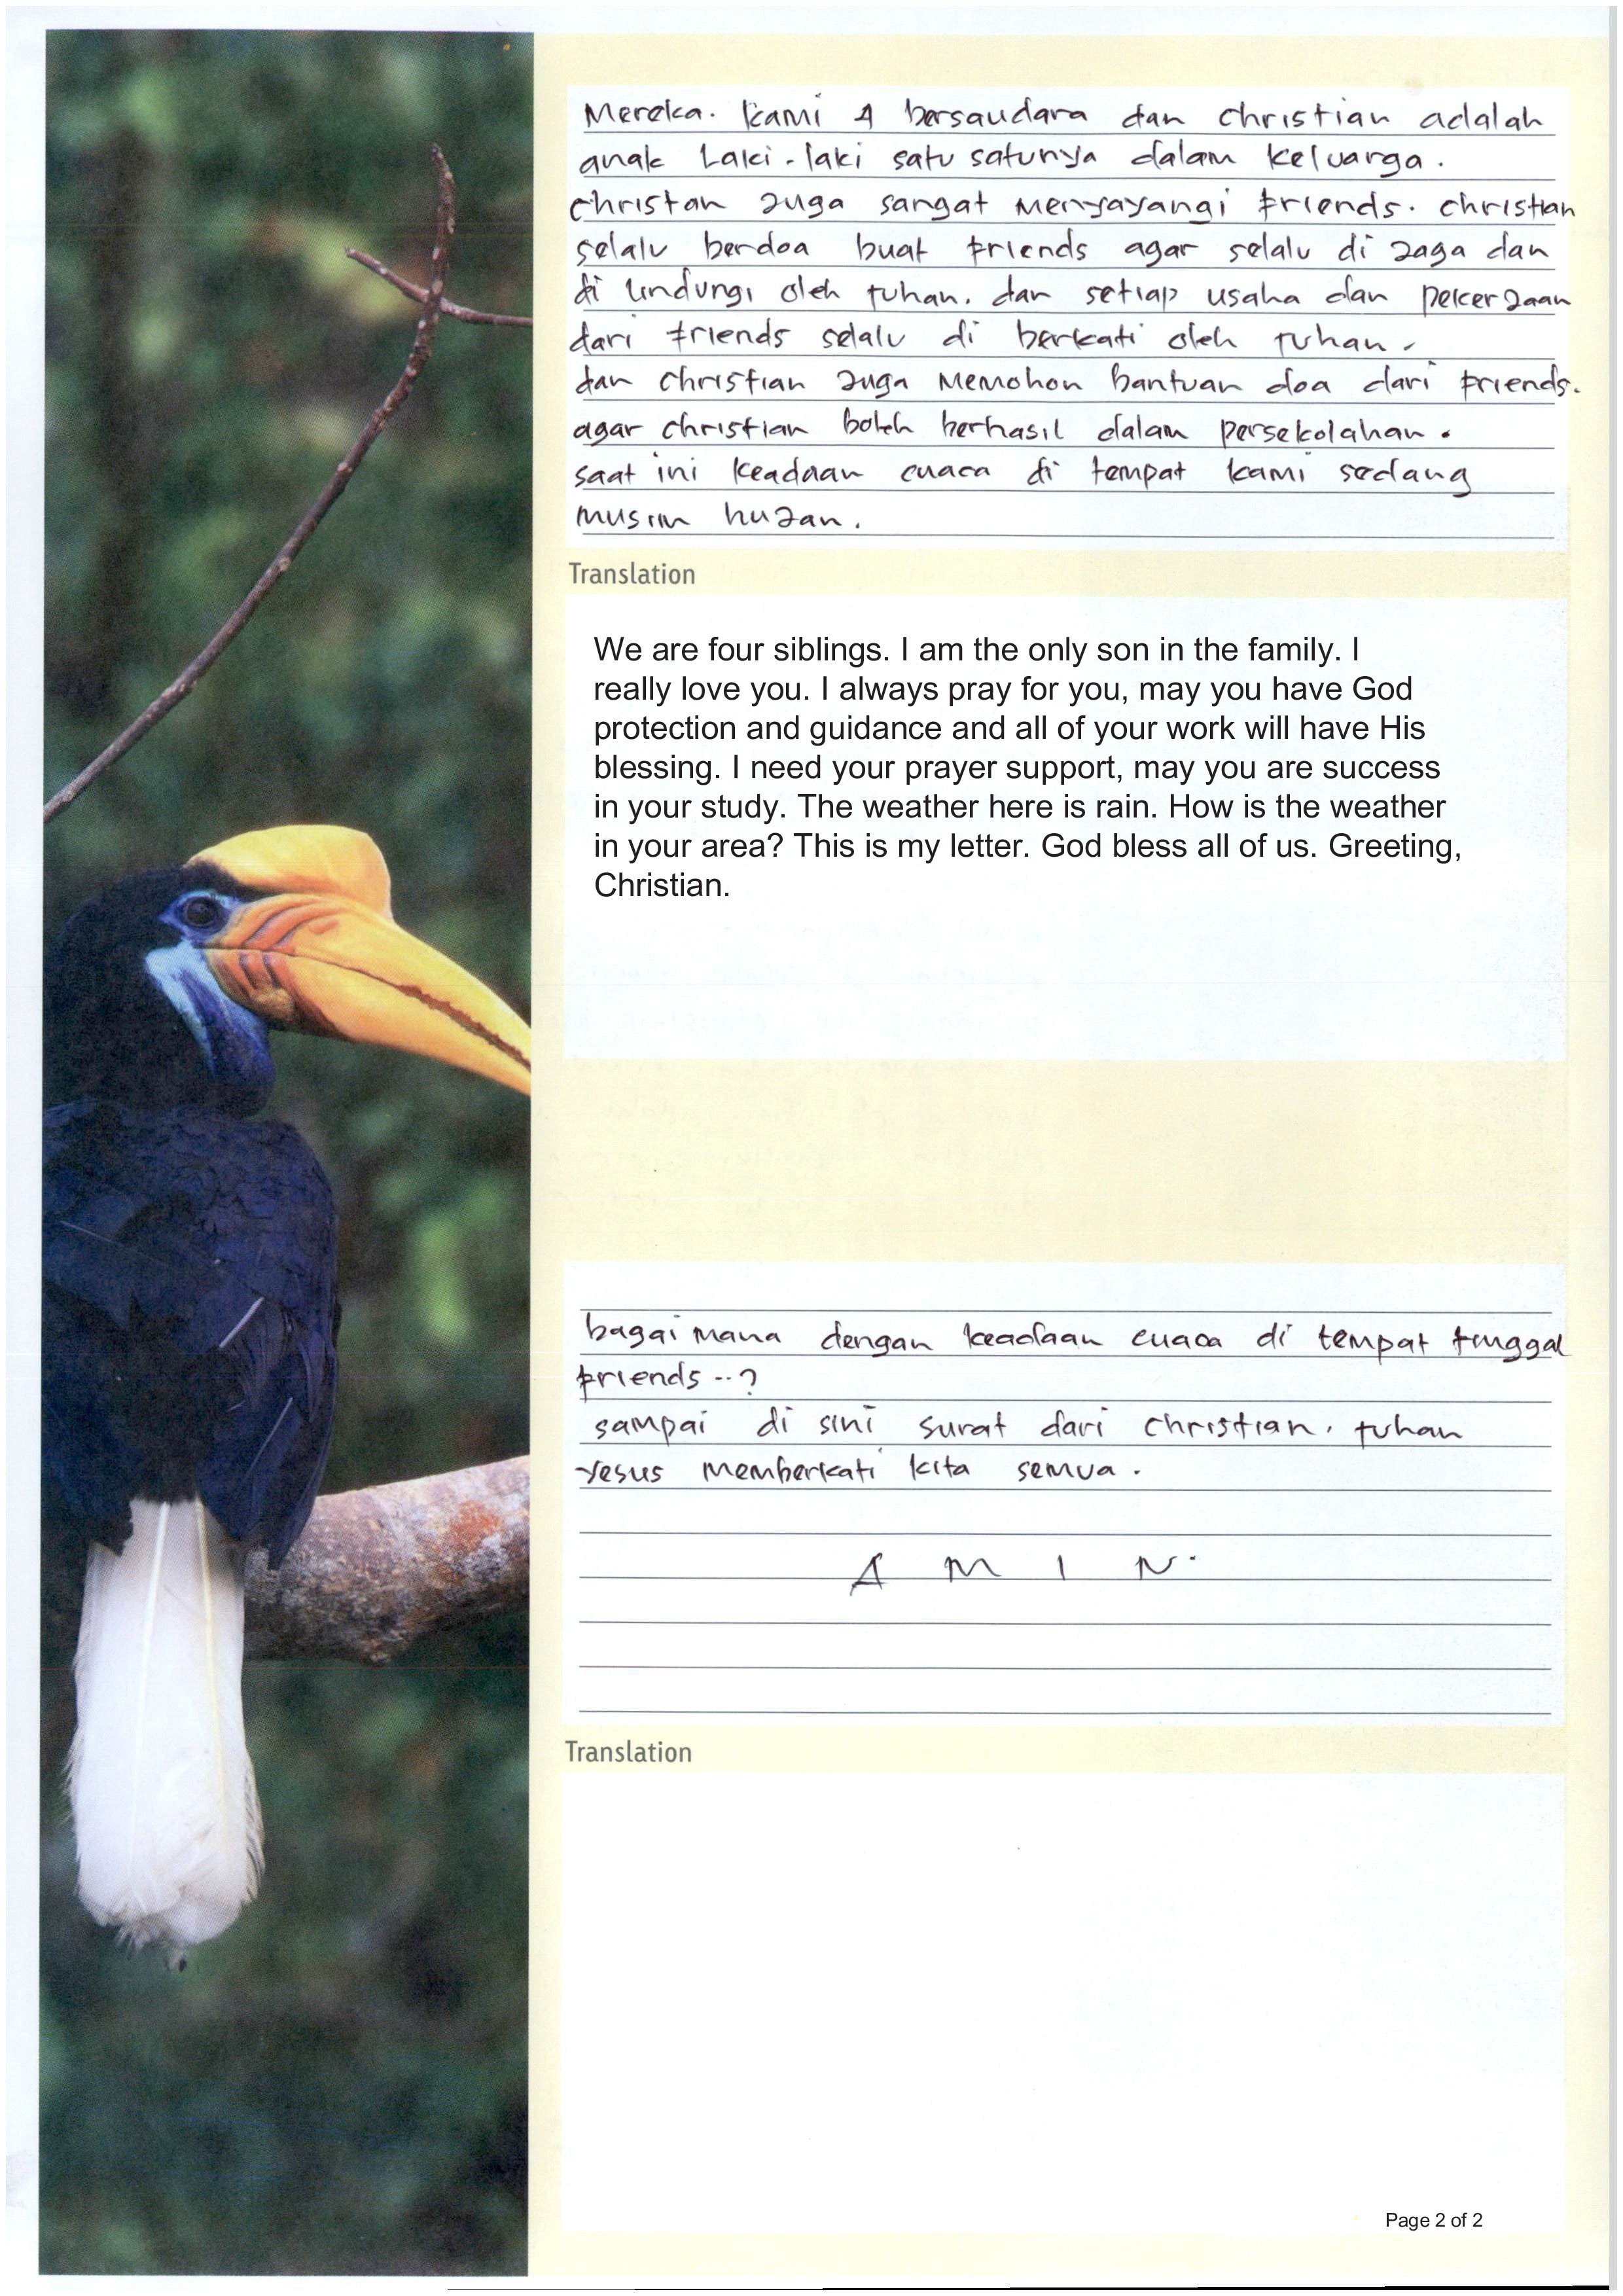 Mereka. Kami 4 bersaudara dan christian adalah
anak Laki-laki satu satunya dalam keluarga.
christan juga sangat menyayangi friends. christian
selalu berdoa buat friends agar selalu di jaga dan
di lindungi oleh tuhan. dan setiap usaha dan pekerjaan
dari friends selalu di berkati oleh tuhan.
dan christian juga memohon bantuan doa dari friends.
agar christian boleh berhasil dalam persekolahan.
saat ini keadaan cuaca di tempat kami sedang
musim hujan.
Translation
We are four siblings. I am the only son in the family. I
really love you. I always pray for you, may you have God
protection and guidance and all of your work will have His
blessing. I need your prayer support, may you are success
in your study. The weather here is rain. How is the weather
in your area? This is my letter. God bless all of us. Greeting,
Christian.
bagai mana dengan keadaan cuaca di tempat tinggal
friends --?
sampai di sini surat dari christian. tuhan
Yesus memberkati kita semua.
A M I N.
Translation
Page 2 of 2